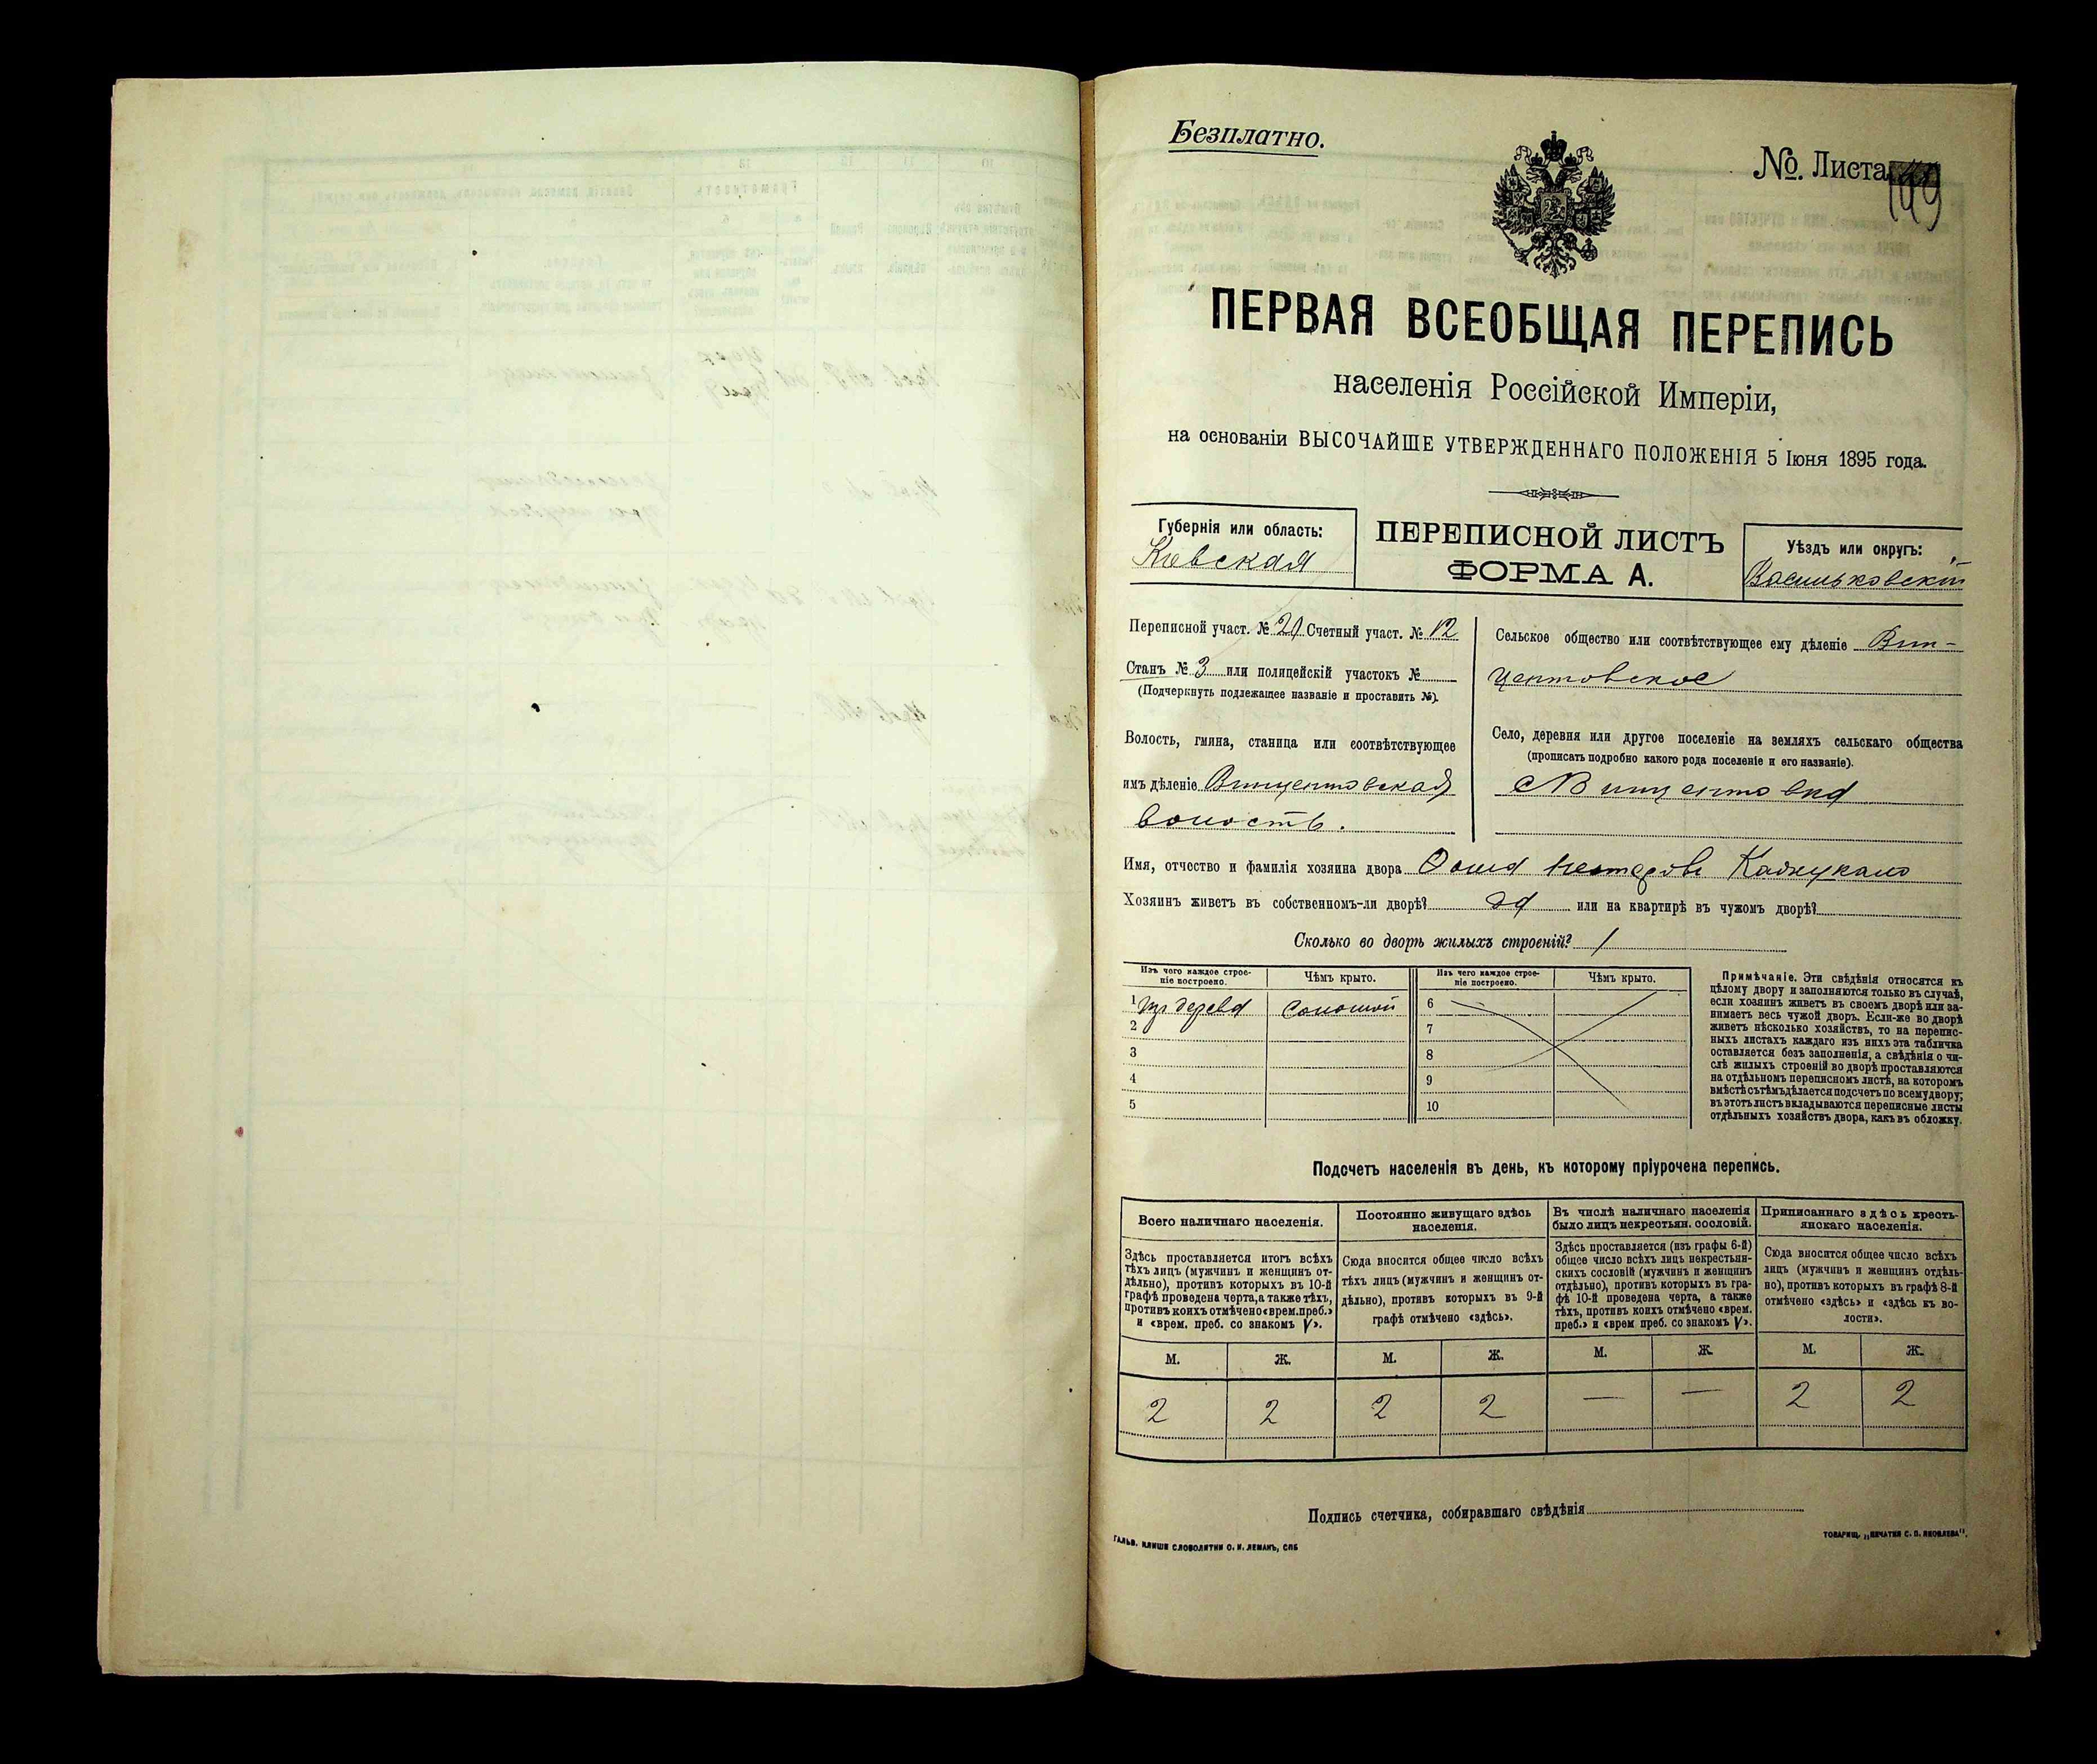 Безплатно.
№. Листа 149
ПЕРВАЯ ВСЕОБЩАЯ ПЕРЕПИСЬ
населенія Россійской Имперіи,
на основаніи ВЫСОЧАЙШЕ УТВЕРЖДЕННАГО ПОЛОЖЕНІЯ 5 Іюня 1895 года.
Губернія или область:
Кіевская
ПЕРЕПИСНОЙ ЛИСТЪ
ФОРМА А.
Уѣздъ или округъ:
Васильковскій
Переписной участ. № 21 Счетный участ. № 12
Станъ № 3 или полицейскій участокъ №
(Подчеркнуть подлежащее названіе и проставить №).
Волость, гмина, станица или соотвѣтствующее
имъ дѣленіе Винцентовская
волость.
Сельское общество или соотвѣтствующее ему дѣленіе Вин-
центовское
Село, деревня или другое поселеніе на земляхъ сельскаго общества
(прописать подробно какого рода поселеніе и его названіе).
с Винцентовка
Имя, отчество и фамилія хозяина двора
Хозяинъ живетъ въ собственномъ-ли дворѣ? да или на квартирѣ въ чужомъ дворѣ?
Сколько во дворѣ жилыхъ строеній? 1
Изъ чего каждое строе-
ніе построено.
Чѣмъ крыто.
Изъ чего каждое строе-
ніе построено.
Чѣмъ крыто.
1 изъ дерева соломой 6
2 7
3 8
4 9
5 10
Примѣчаніе. Эти свѣдѣнія относятся къ
цѣлому двору и заполняются только въ случаѣ,
если хозяинъ живетъ въ своемъ дворѣ или за-
нимаетъ весь чужой дворъ. Если-же во дворѣ
живетъ нѣсколько хозяйствъ, то на перепис-
ныхъ листахъ каждаго изъ нихъ эта табличка
оставляется безъ заполненія, а свѣдѣнія о чи-
слѣ жилыхъ строеній во дворѣ проставляются
на отдѣльномъ переписномъ листѣ, на которомъ
вмѣстѣ съ тѣмъ дѣлается подсчетъ по всему двору;
въ этотъ листъ вкладываются переписные листы
отдѣльныхъ хозяйствъ двора, какъ въ обложку.
Подсчетъ населенія въ день, къ которому пріурочена перепись.
Всего наличнаго населенія.
Здѣсь проставляется итогъ всѣхъ
тѣхъ лицъ (мужчинъ и женщинъ от-
дѣльно), противъ которыхъ въ 10-й
графѣ проведена черта, а также тѣхъ,
противъ коихъ отмѣчено «врем. преб.»
и «врем. преб. со знакомъ V».
Постоянно живущаго здѣсь
населенія.
Сюда вносится общее число всѣхъ
тѣхъ лицъ (мужчинъ и женщинъ от-
дѣльно), противъ которыхъ въ 9-й
графѣ отмѣчено «здѣсь».
Въ числѣ наличнаго населенія
было лицъ некрестьян. сословій.
Здѣсь проставляется (изъ графы 6-й)
общее число всѣхъ лицъ некрестьян-
скихъ сословій (мужчинъ и женщинъ
отдѣльно), противъ которыхъ въ гра-
фѣ 10-й проведена черта, а также
тѣхъ, противъ коихъ отмѣчено «врем.
преб.» и «врем преб. со знакомъ V».
Приписаннаго здѣсь кресть-
янскаго населенія.
Сюда вносится общее число всѣхъ
лицъ (мужчинъ и женщинъ отдѣль-
но), противъ которыхъ въ графѣ 8-й
отмѣчено «здѣсь» и «здѣсь къ во-
лости».
М. Ж. М. Ж. М. Ж. М. Ж.
2 2 2 2 — — 2 2
Подпись счетчика, собиравшаго свѣдѣнія
ГАЛЬВ. КЛИШЕ СЛОВОЛИТНИ О. И. ЛЕМАНЪ, СПБ
ТОВАРИЩ. „ПЕЧАТНЯ С. П. ЯКОВЛЕВА".